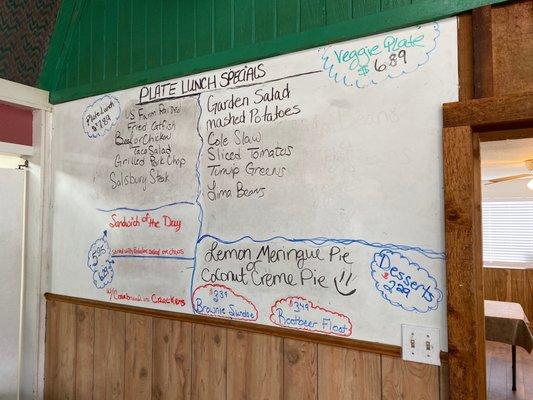 Plate Lunch Specials
Plate Lunch
$7.89
US Farm Raised
Fried Catfish
Beef or Chicken
Taco Salad
Grilled Pork Chop
Salsbury Steak
Garden Salad
mashed Potatoes
Cole Slaw
Sliced Tomatos
Turnip Greens
Lima Beans
Veggie Plate
$6.89
Sandwich of the Day
served with Potatoe salad or chips
5.95
6.29
w/ Cornbread or Crackers
Lemon Meringue Pie
or
Coconut Creme Pie
Desserts
2.29
Brownie Sundae
$3.49
Rootbeer Float